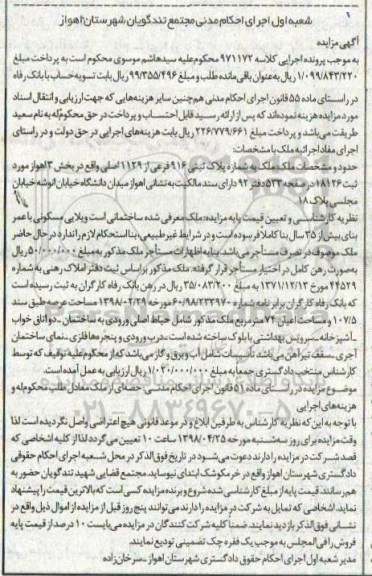 شعبه اول اجرای احکام مدنی مجتمع تندگویان شهرستان اهواز
آگهی مزایده
به موجب پرونده اجرایی کلاسه ۹۷۱۱۷۲ محکوم علیه سیدهاشم موسوی محکوم است به پرداخت مبلغ
۱/۰۹۹/۸۴۳/۲۲۰ ریال به عنوان باقی مانده طلب و مبلغ ۹۹/۳۵۵/۴۹۶ ریال بابت تسویه حساب با بانک رفاه
در راستای ماده ۵۵ قانون اجرای احکام مدنی هم چنین سایر هزینه هایی که جهت ارزیابی و انتقال اسناد
مورد مزایده هزینه نموده اند که پس از ارائه رسید قابل احتساب و پرداخت در حق محکوم له به نام سعید
طریقت می باشد و پرداخت مبلغ ۲۲۶/۷۷۹/۶۶۱ ریال بابت هزینه های اجرایی در حق دولت و در راستای
اجرای مفاد اجرائیه ملک با مشخصات:
حدود و مشخصات ملک: ملک به شماره پلاک ثبتی ۹۱۶ فرعی از ۱۱۲۹ اصلی واقع در بخش ۳ اهواز مورد
ثبت ۱۸۱۲۶ در صفحه ۵۳۲ دفتر ۹۲ دارای سند مالکیت به نشانی اهواز میدان دانشگاه خیابان انوشه خیابان
مجلسی پلاک ۱۸
نظریه کارشناسی و تعیین قیمت پایه مزایده: ملک معرفی شده ساختمانی است ویلایی مسکونی با عمر
بنای بیش از ۳۵ سال بنا کاملا فرسوده است و در شرایط غیر طبیعی، بنا استحکام لازم را ندارد در حال حاضر
ملک موصوف در تصرف مستأجر می باشد. بنا به اظهارات مستأجر ملک مذکور به مبلغ ۵۰/۰۰۰/۰۰۰ ریال
به صورت رهن کامل در اختیار مستأجر قرار گرفته. ملک مذکور براساس ثبت دفتر املاک رهنی به شماره
۴۴۵۲۹ مورخ ۱۳۷۱/۱۲/۱۳ به مبلغ ۳۵/۰۸۳/۲۰۰ ریال در رهن بانک رفاه کارگران به ثبت رسیده است
که بانک رفاه کارگران برابر نامه شماره ۶۰/۹۸/۲۳۳۹۷ مورخه ۱۳۹۸/۰۲/۲۹ مساحت عرصه طبق سند
۱۰۷/۵ و مساحت اعیان ۷۴ مترمربع ملک مذکور شامل حیاط اصلی ورودی به ساختمان ـ دو اتاق خواب
ـ آشپزخانه ـ سرویس بهداشتی با بلوک ساخته شده است ـ درب ورودی و پنجره ها فلزی ـ نمای ساختمان
آجری ـ سقف تیرآهن می باشد تأسیسات شامل آب و برق و گاز می باشد که از محکوم علیه توقیف که توسط
کارشناس منتخب دادگستری جمعاً به مبلغ ۱/۰۳۰/۰۰۰/۰۰۰ ریال ارزیابی به عمل آمده است.
موضوع مزایده در راستای ماده ۵۱ قانون اجرای احکام مدنی: حصه ای از ملک معادل طلب محکوم له و
هزینه های اجرایی
با توجه به این که نظریه کارشناس به طرفین ابلاغ و در موعد قانونی هیچ اعتراضی واصل نگردیده است لذا
وقت مزایده برای روز سه شنبه مورخه ۱۳۹۸/۰۴/۲۵ ساعت ۱۰ تعیین می گردد لذا از کلیه اشخاصی که
قصد شرکت در مزایده را دارند دعوت می شود در تاریخ فوق الذکر در محل شعبه اجرای احکام حقوقی
دادگستری شهرستان اهواز واقع در خرمکوشک ابتدای نیوساید مجتمع قضایی شهید تندگویان حضور به
هم رسانند. قیمت پایه از مبلغ کارشناسی شده شروع و برنده مزایده کسی است که بالاترین قیمت را پیشنهاد
نماید. اشخاصی که تمایل به شرکت در مزایده را دارند می توانند پنج روز قبل از مزایده از اموال ذیل واقع در
نشانی فوق الذکر بازدید نمایند. ضمناً کلیه شرکت کنندگان در مزایده می بایست ۱۰ درصد از قیمت پایه
فروش را فی المجلس به موجب یک فقره چک تضمینی تودیع نمایند.
مدیر شعبه اول اجرای احکام حقوق دادگستری شهرستان اهواز ـ سرخان زاده
۰۲۱-۸۸۳۴۹۶۷۰-۵